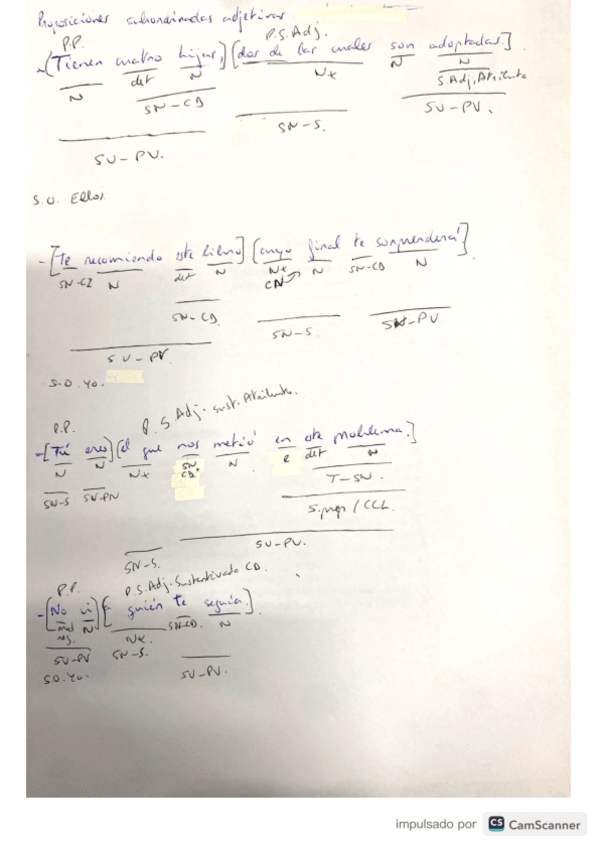 Proposiciones subordinadas adjetivas
P.P. P.S.Adj.
-[Tienen cuatro hijos,] [dos de las cuales son adoptadas.]
N det N Nx N N
SN-CD S.Adj, Atributo
SN-S. SU-PV.
SU-PV.
S.O. Ellos.
-[te recomiendo este libro] [cuyo final te sorprenderá]
SN-CI N det N Nx N SN-CD N
CN
SN-CD. SN-S. SN-PV
SU-PV.
S.O. Yo.
P.P. P.S.Adj. sust. Atributo.
-[Tú eres] [el que nos metió en este problema.]
N N Nx SN CD. N e det N
SN-S SV-PN T-SN.
S.prep / CCL.
SN-S. SU-PV.
P.P. P.S.Adj. Sustantivado CD.
-[No vi] [a quién te seguía.]
mod neg. N Nx. SN-CD. N
SU-PV SN-S. SU-PV.
S.O. Yo.
impulsado por CS CamScanner